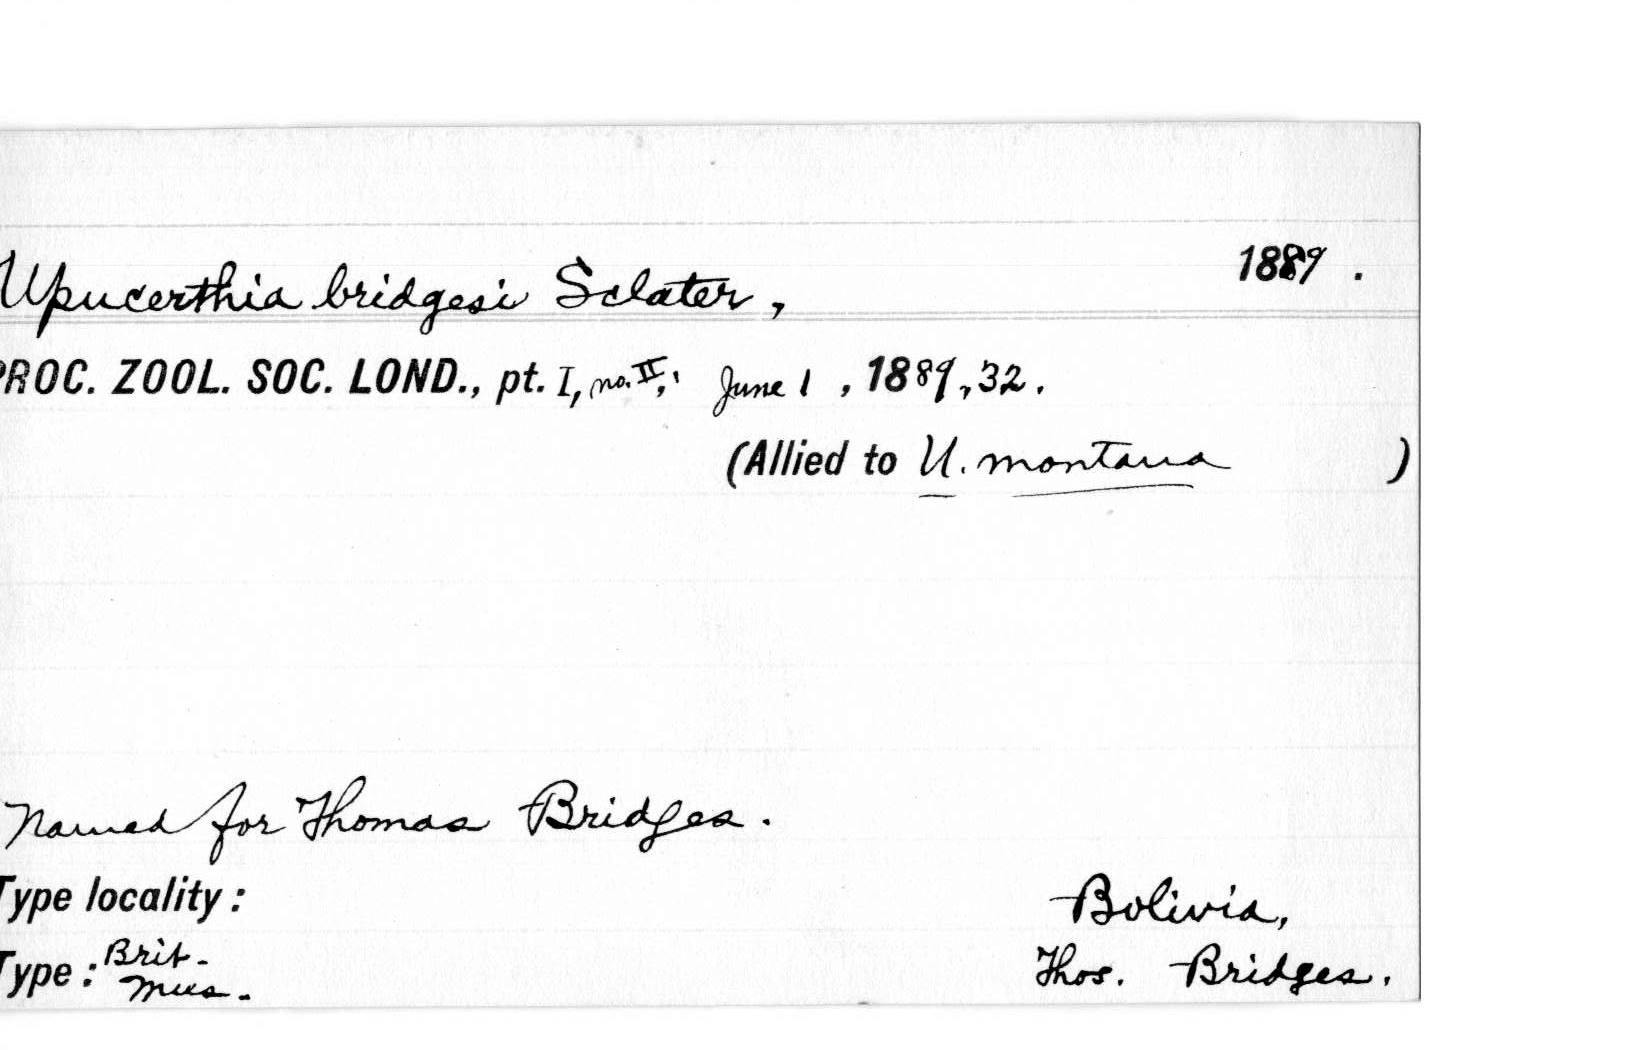 Upucerthia bridgesi Sclater, 1889.
PROC. ZOOL. SOC. LOND., pt. I, no. II, June 1, 1889, 32.
(Allied to U. montana)
Named for Thomas Bridges.
Type locality: Bolivia,
Type: Brit. Mus. Thos. Bridges.